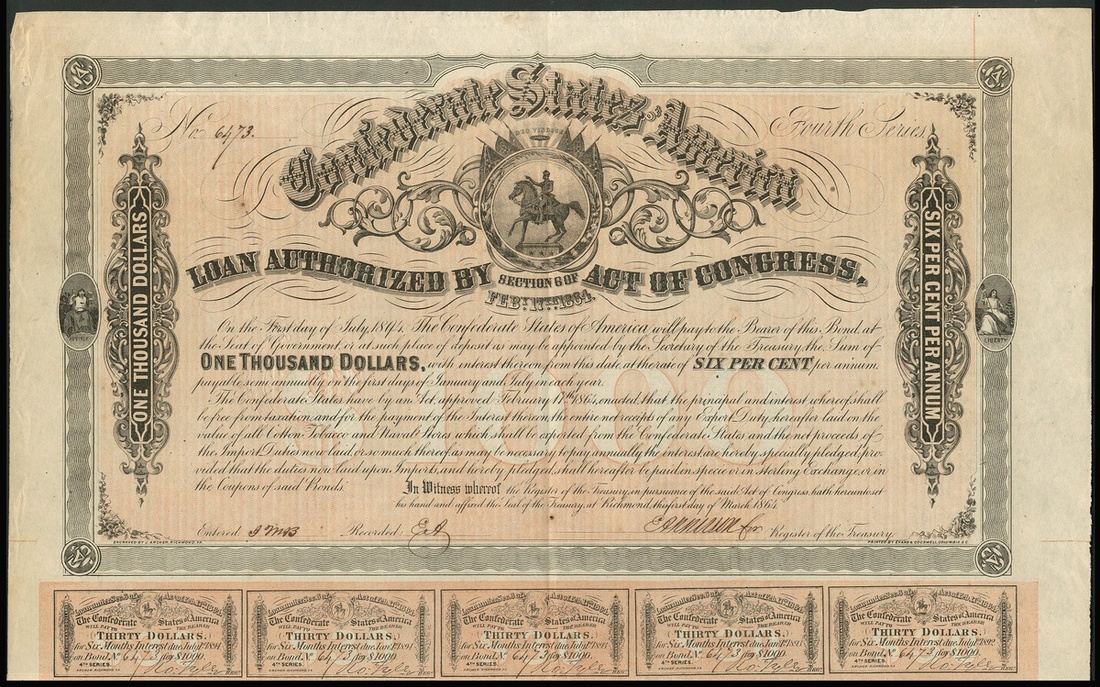 No. 6473.
Fourth Series
Confederate States of America
DEO VINDICE
LOAN AUTHORIZED BY SECTION 6 OF ACT OF CONGRESS,
FEBY. 17TH. 1864.
ONE THOUSAND DOLLARS
SIX PER CENT PER ANNUM
LIBERTY
On the First day of July, 1894. The Confederate States of America will pay to the Bearer of this Bond, at
the Seat of Government or at such place of deposit as may be appointed by the Secretary of the Treasury, the Sum of
ONE THOUSAND DOLLARS, with interest thereon from this date, at the rate of SIX PER CENT per annum.
payable semi annually on the first days of January and July in each year.
The Confederate States have by an Act, approved February 17th 1864, enacted, that the principal and interest whereof shall
be free from taxation, and for the payment of the Interest thereon, the entire net receipts of any Export Duty hereafter laid on the
value of all Cotton Tobacco and Naval Stores which shall be exported from the Confederate States and the net proceeds of
the Import Duties now laid, or so much thereof as may be necessary to pay annually the interest are hereby specially pledged, pro-
vided that the duties now laid upon Imports, and hereby pledged, shall hereafter be paid in specie or in Sterling Exchange, or in
the Coupons of said Bonds.
In Witness whereof the Register of the Treasury, in pursuance of the said Act of Congress, hath hereunto set
his hand and affixed the Seal of the Treasury, at Richmond, this first day of March 1864.
$1000
Entered
Recorded
Register of the Treasury.
ENGRAVED BY J. ARCHER, RICHMOND, VA.
PRINTED BY EVANS & COGSWELL, COLUMBIA, S.C.
Loan under Sec. 6 of Act of Feb. 17th 1864.
The Confederate States of America
WILL PAY TO THE BEARER
THIRTY DOLLARS,
for Six Months Interest due July 1st 1894
on Bond No. 6473 for $1000.
4TH SERIES.
Loan under Sec. 6 of Act of Feb. 17th 1864.
The Confederate States of America
WILL PAY TO THE BEARER
THIRTY DOLLARS,
for Six Months Interest due Jany 1st 1894
on Bond No. 6473 for $1000.
4TH SERIES.
Loan under Sec. 6 of Act of Feb. 17th 1864.
The Confederate States of America
WILL PAY TO THE BEARER
THIRTY DOLLARS,
for Six Months Interest due July 1st 1893
on Bond No. 6473 for $1000.
4TH SERIES.
Loan under Sec. 6 of Act of Feb. 17th 1864.
The Confederate States of America
WILL PAY TO THE BEARER
THIRTY DOLLARS,
for Six Months Interest due Jany 1st 1893
on Bond No. 6473 for $1000.
4TH SERIES.
Loan under Sec. 6 of Act of Feb. 17th 1864.
The Confederate States of America
WILL PAY TO THE BEARER
THIRTY DOLLARS,
for Six Months Interest due July 1st 1892
on Bond No. 6473 for $1000.
4TH SERIES.